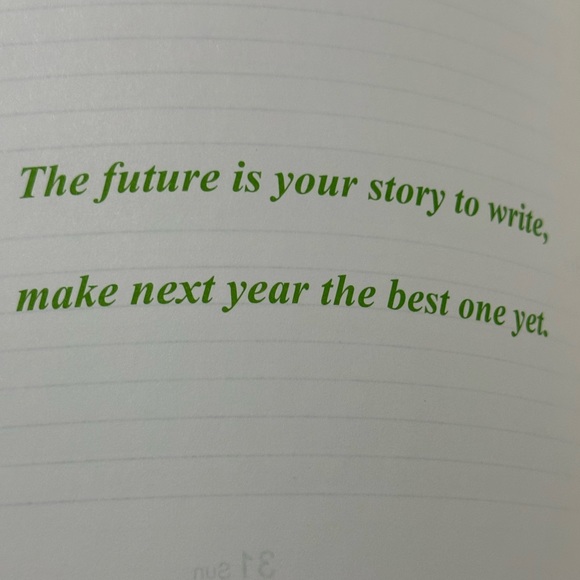 The future is your story to write,
make next year the best one yet.
31 Sun